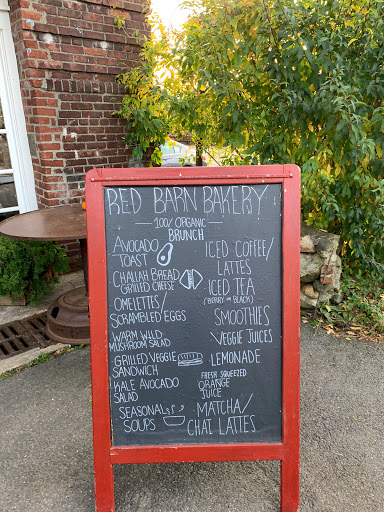 RED BARN BAKERY
100% ORGANIC
BRUNCH
AVOCADO
TOAST
CHALLAH BREAD
GRILLED CHEESE
OMELETTES/
SCRAMBLED EGGS
WARM WILD
MUSHROOM SALAD
GRILLED VEGGIE
SANDWICH
KALE AVOCADO
SALAD
SEASONAL
SOUPS
ICED COFFEE/
LATTES
ICED TEA
(BERRY OR BLACK)
SMOOTHIES
VEGGIE JUICES
LEMONADE
FRESH SQUEEZED
ORANGE
JUICE
MATCHA/
CHAI LATTES